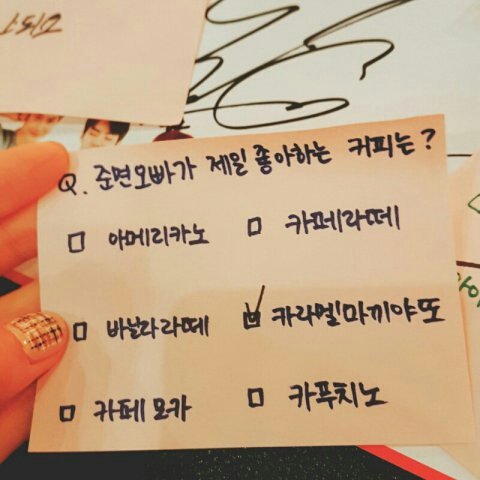 Q. 준면오빠가 제일 좋아하는 커피는?
아메리카노 카페라떼
바닐라라떼 카라멜마끼야또
카페모카 카푸치노